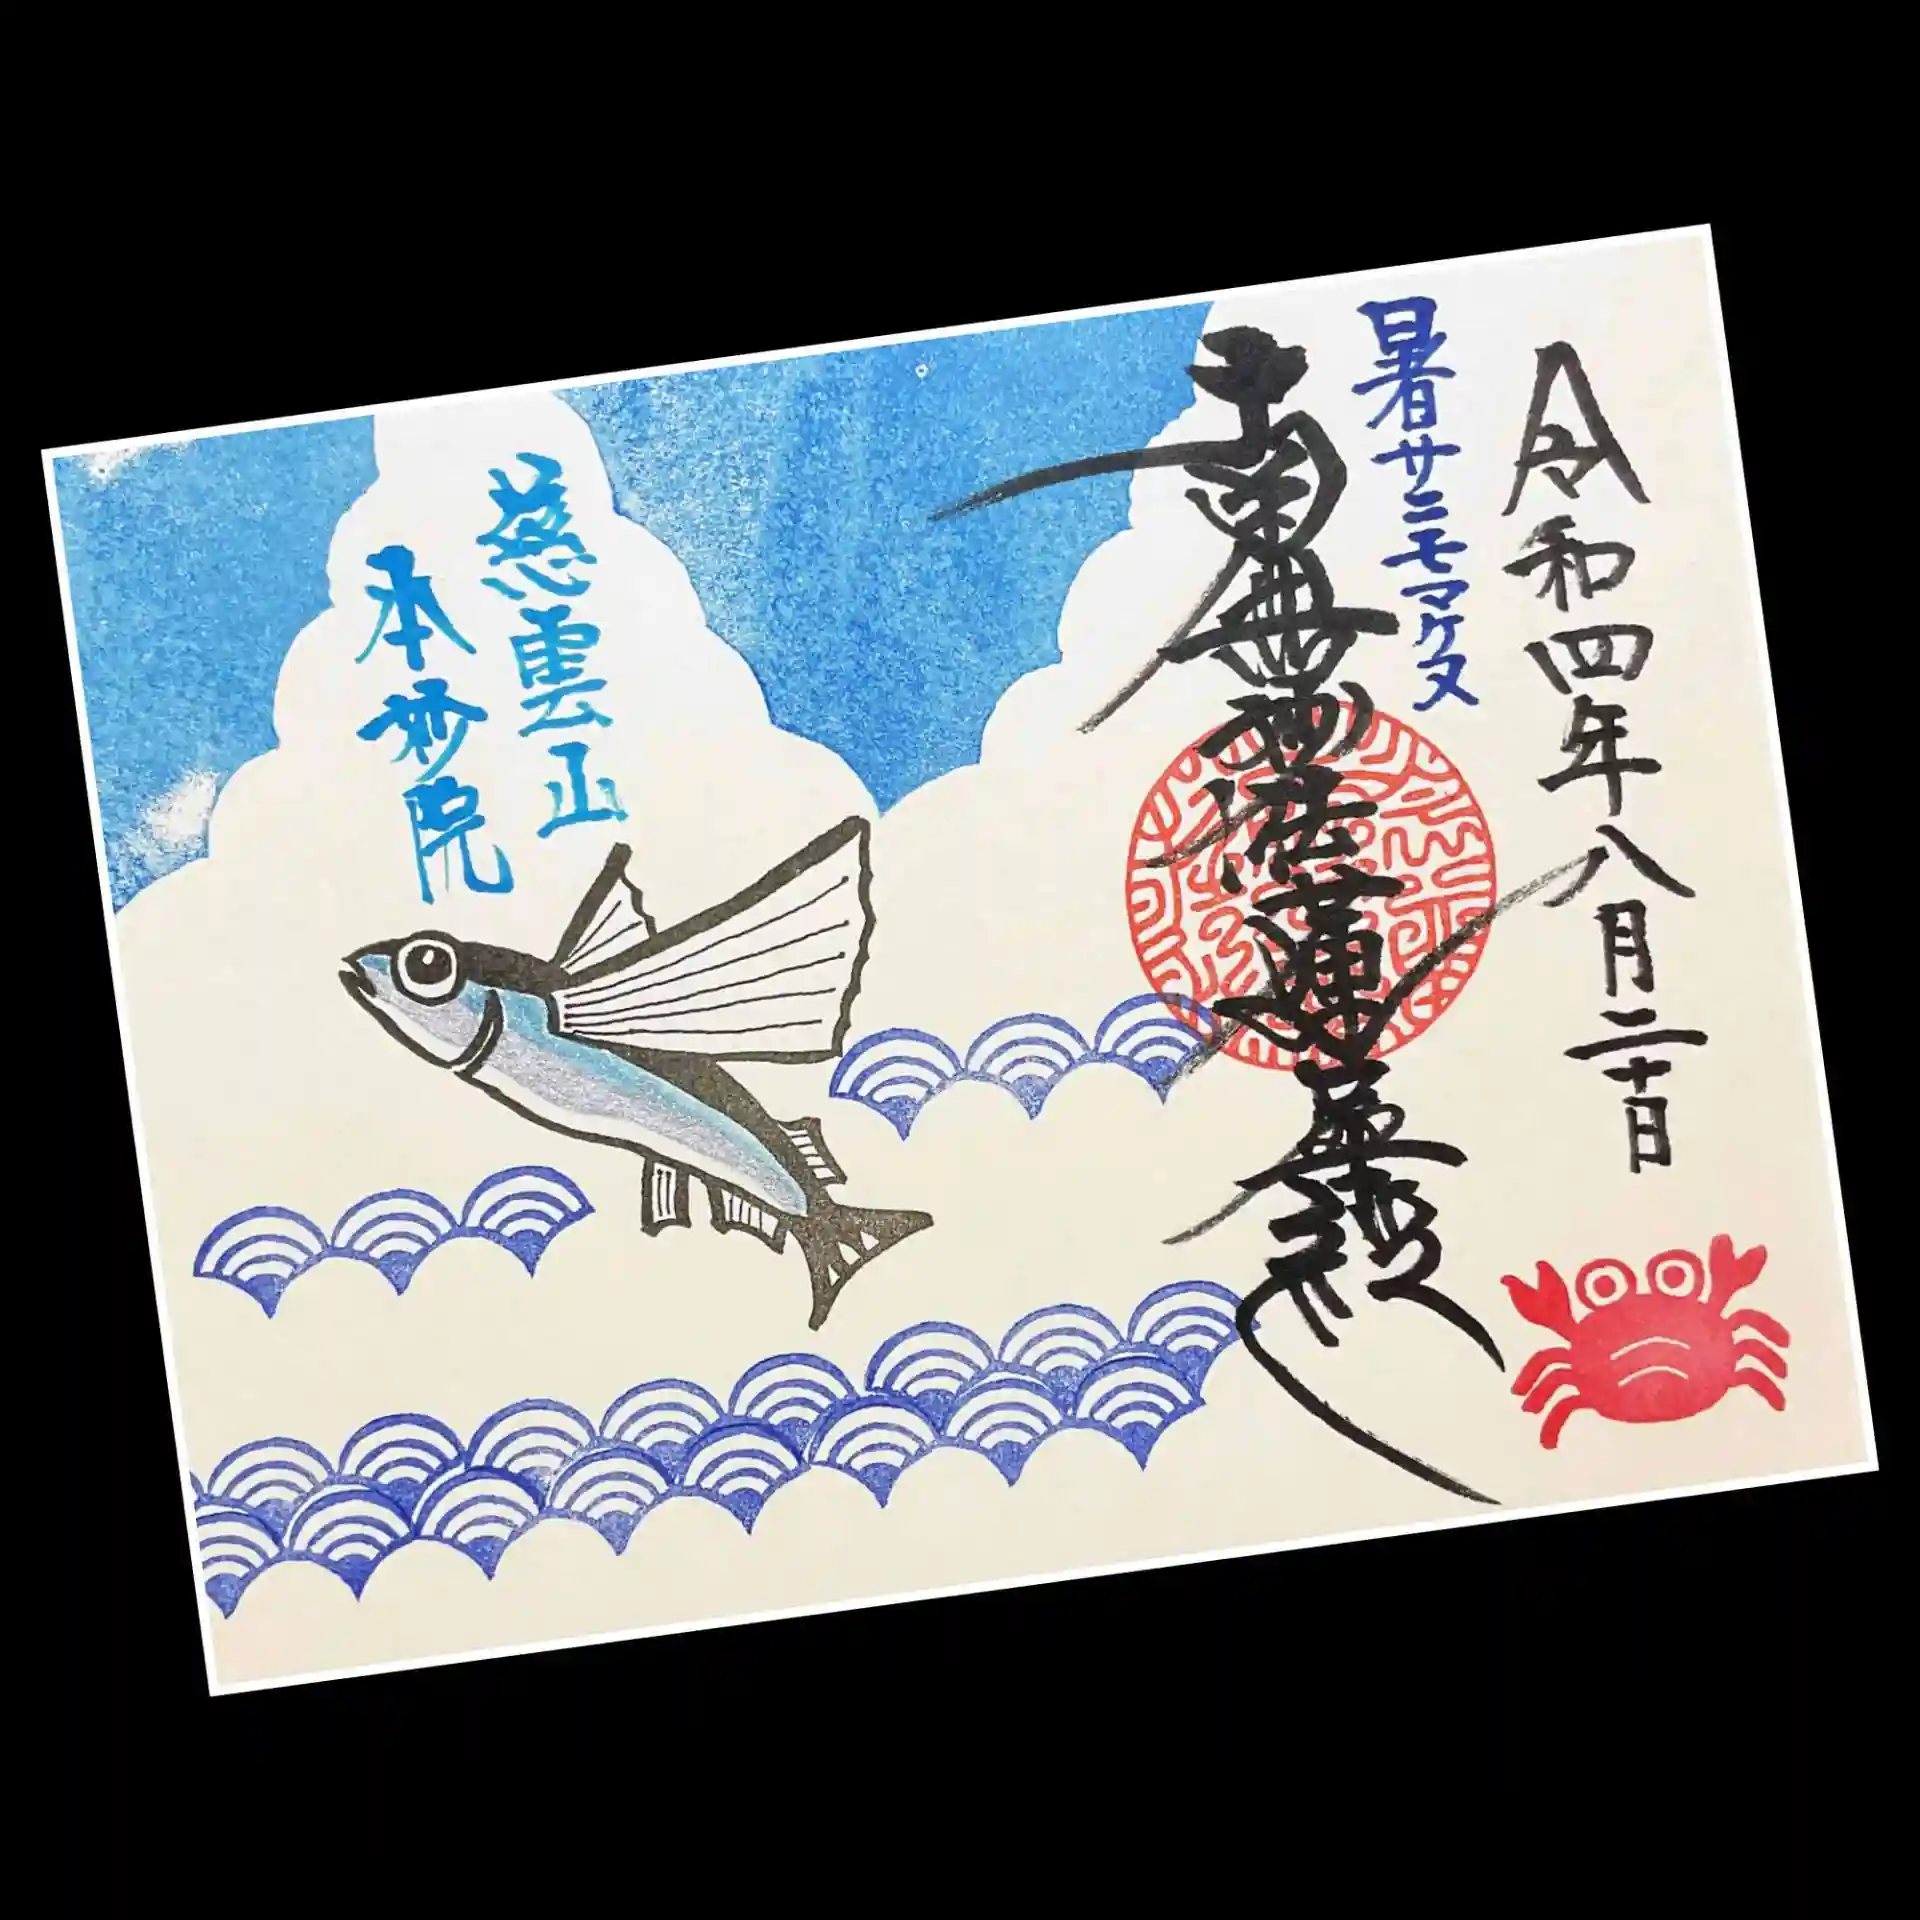 令和四年八月二十日
暑サニモマケヌ
南無妙法蓮華経
慈雲山
本妙院